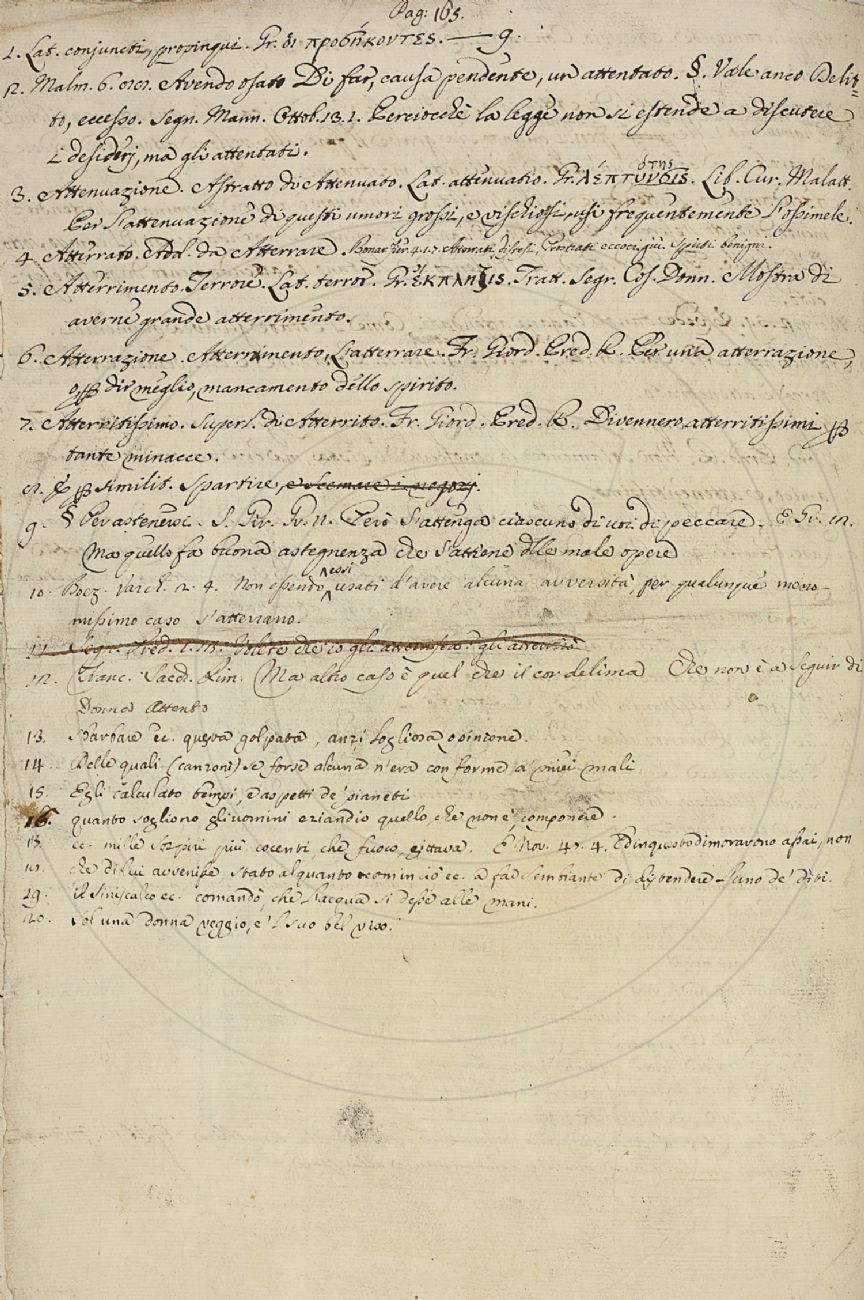 Pag: 165.
1. Lat. conjuncti, propinqui. Gr. οἱ προσήκοντες. — 9.
2. Malm. 6. 101. Avendo osato Di far, causa pendente, un attentato. §. Vale anco Delit=
to, eccesso. Segn. Mann. Ottob. 13. 1. Perciocchè la legge non si estende a discutere
i desiderj, ma gli attentati.
3. Attenuazione. Astratto di Attenuato. Lat. attenuatio. Gr. λεπτότης. Lib. Cur. Malatt.
Per l'attenuazione di questi umori grossi, e vischiosi, usi frequentemente l'ossimele.
4. Atterrato. Add. da Atterrare. Prostrati eccoci giù. Spirti benigni.
5. Atterrimento. Terrore. Lat. terror. Gr. ἔκπληξις. Tratt. Segr. Cos. Donn. Mostra di
averne grande atterrimento.
6. Atterrazione. Atterrimento, L'atterrare. Fr. Giord. Pred. R. Per una atterrazione,
o p dir meglio, mancamento dello spirito.
7. Atterritissimo. Superl. di Atterrito. Fr. Giord. Pred. R. Divennero atterritissimi p
tante minacce.
8. E p similit. Spartire, e scemare i negozj.
9. § Per astenersi. S. Gir. Gr. n. Però s'attenga ciascuno di voi di peccare. E Gr. 12.
Ma quello fa buona astegnenza che s'attiene dlle male opere
10. Boez. Varch. 2. 4. Non essendo essi usati d'avere alcuna avversità, per qualunque meno-
missimo caso s'atterrano.
11. Segn. Pred. 1. 11. Volete che io gli atterrisca? gli atterrirò
12. Franc. Sacch. Rim. Ma altro caso è quel che il cor delima Che non è a seguir di
Donna Attento
13. Sbarbare ec. questa golpata, anzi sogliosa opinione.
14. Delle quali (canzoni) se forse alcuna n'era conforme a' miei mali.
15. Egli calculato tempi, e aspetti de' pianeti
16. quanto sogliono gli uomini eziandio quello che non è, comporre.
17. ec. mille sospiri più cocenti, che fuoco, gittava. E Nov. 47. 4. E dinquesto dimoravono assai, non
18. che di lui avvenisse stato alquanto cominciò ec. a far sembiante di distendere l'uno de' diti.
19. il siniscalco ec. comandò, che l'acqua si desse alle mani.
20. sol una donna veggio, e 'l suo bel viso.